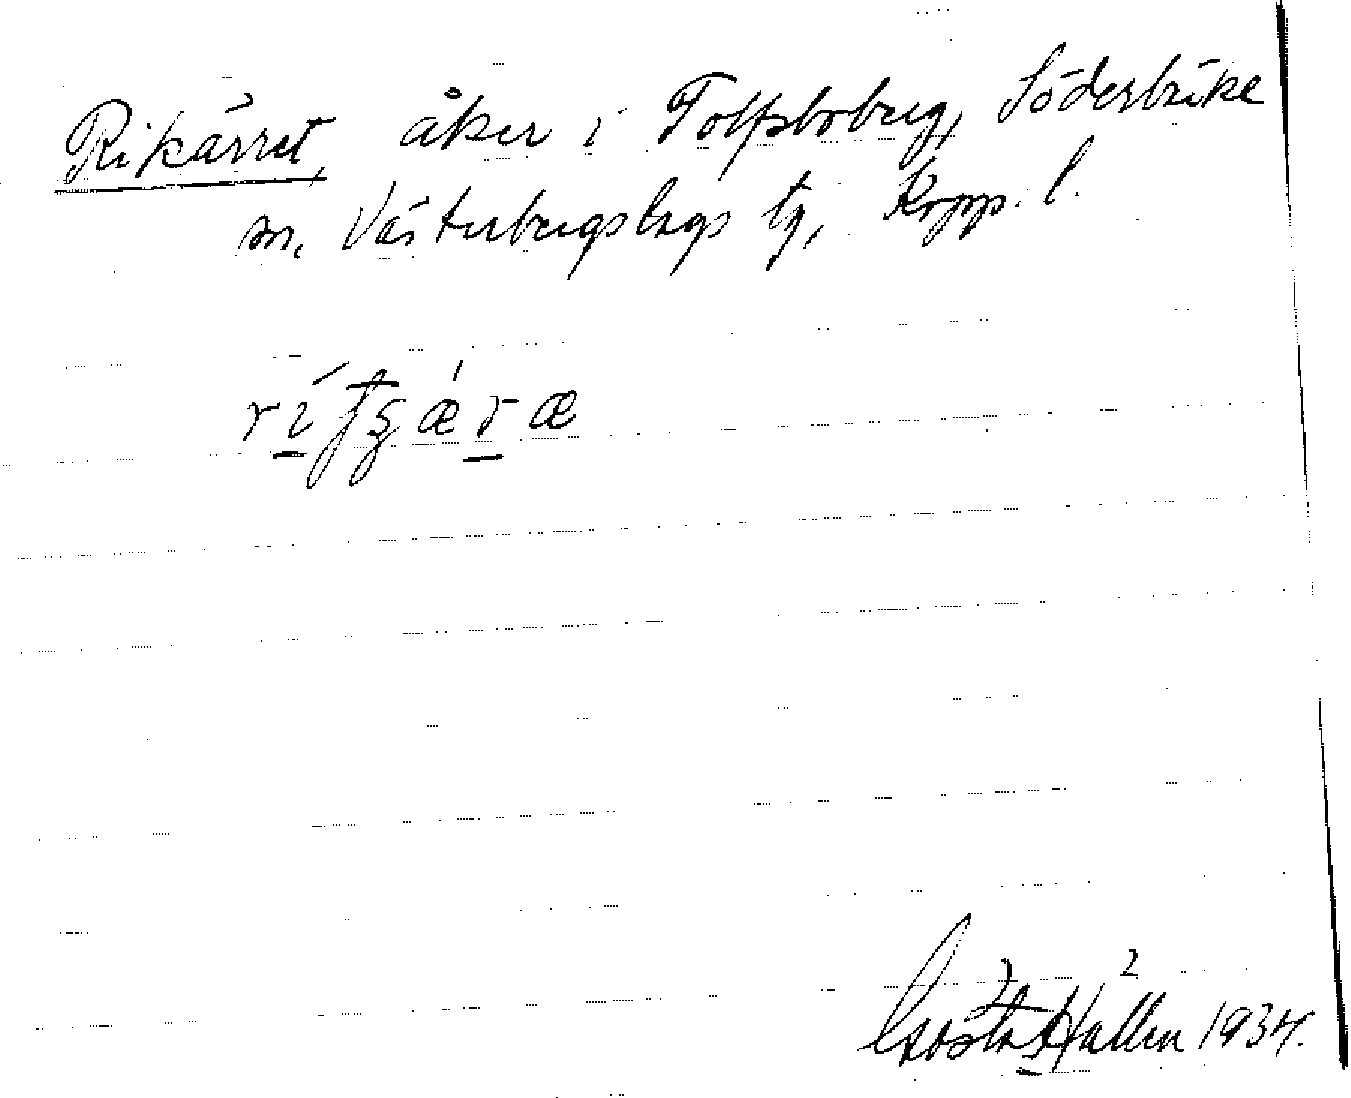 Rikärret, åker i Tolfsboberg, Söderbärke
sn, Västerbergslags tg, Kopp. l.
Gösta Hallen 1934.